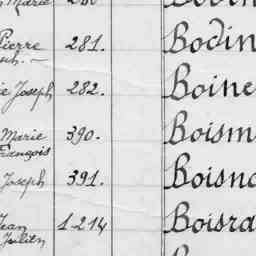 Marie 280 Bodin
Pierre 281. Bodin
Joseph 282. Boine
Marie 390. Boism
François
Joseph 391. Boisno
Jean 1214 Boisra
Julien